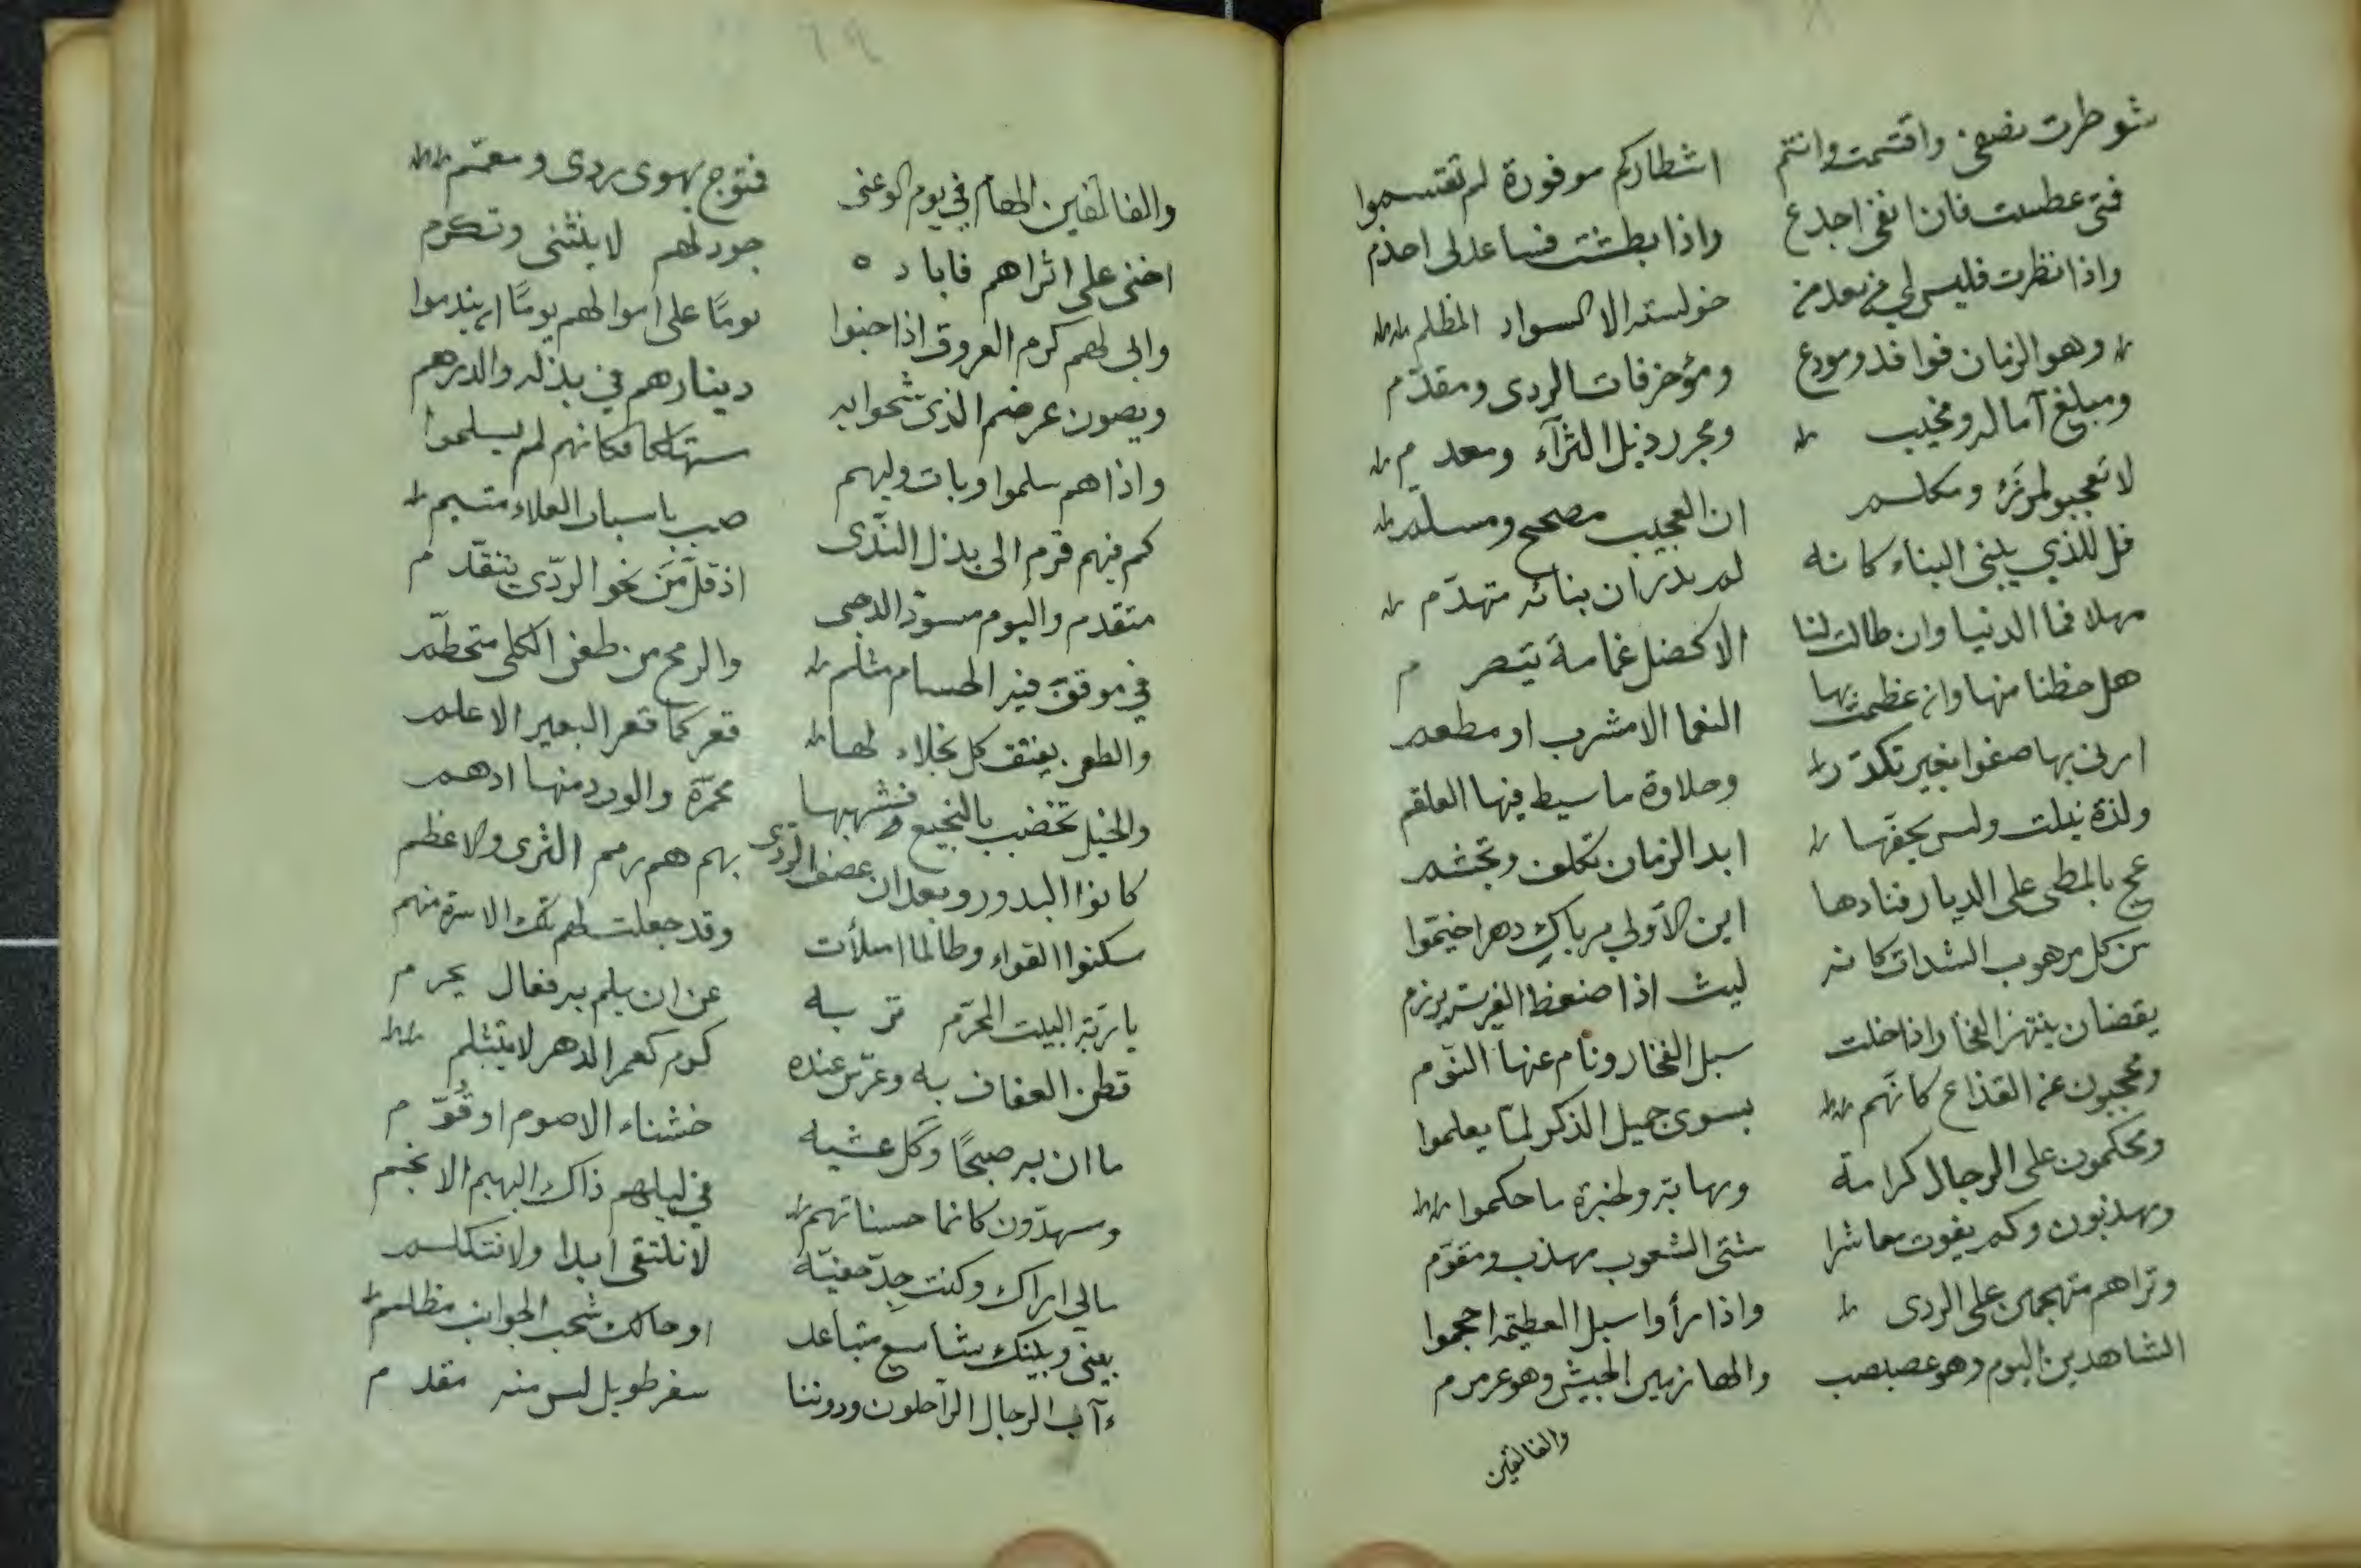 شوطرت نصفى واقتسمت وانتم اشطاركم موفورة لم تقتسموا
فمتى عطست فان انفى اجدع واذا بطشت فساعدلى اجذم
واذا نظرت فليس لى من بعد من خولسته الا السواد المظلم
وهو الزمان فوافد ومودع ومؤخر فات الردى ومقدّم
ومبلغ آماله ومخيب ومجرر ذيل الثرآء ومعدم
لا تعجبو لمرزء ومكلم ان العجيب مصحح ومسلّم
قل للذي يبنى البناء كانه لم يدر ان بنائه متهدّم
مهلا فما الدنيا وان طالت لنا الا كخضل غمامة يتصرم
هل حظنا منها وان عظمت بها النعما الا مشرب او مطعم
ارنى بها صفوا بغير تكدّر وحلاوة ما سيط فيها العلقم
ولذة نيلت وليس بجفنها ابد الزمان تكلف وتجشم
عج بالمطى على الديار فنادها اين الاولى مرباك دهرا خيّموا
من كل مرهوب الشدات كانه ليث اذا ضغط الفريسة يرزم
يقضان ينتهز الفخار اذا خلت سبل الفخار ونام عنها النوّم
ومحجبون عن القذاع كانّهم بسوى جميل الذكر لمّا يعلموا
ومحكمون على الرجال كرامة ومهابة ولخبرة ما حكموا
ومهذبون وكم يفوت معاشرا شتى الشعوب مهذب ومقوّم
وتراهم متهجمين على الردى واذا رأوا سبل العظيمه احجموا
الشاهدين اليوم وهو عصبصب والهازمين الجيش وهو عرمرم
والفالقين
٦٩
والفالقين الهام في يوم الوغى فمتوج يهوى ردى ومعمّم
اخنى على اثراهم فاباد ه جود لهم لا ينثنى وتكرم
وابى لهم كرم العروق اذا حبوا يومًا على اموالهم يومًا ان يندموا
ويصون عرضهم الذى شحوا به دينارهم في بذله والدرهم
واذا هم سلموا وبات وليهم مستهلكا فكانهم لم يسلموا
كم فيهم قرم الى بذل النّدى صب باسباب العلاء متيم
متقدم واليوم مسودّ الدجى اذ قلّ من نحو الردّى يتقدّم
في موقف فيه الحسام مثلم والرمح من طعن الكلى متحطّم
والطعن يفتق كل نجلاء لها قعر كما قعر البعير الاعلم
والخيل تخضب بالنجيع فشهبها محمرّة والورد منها ادهم
كانوا البدور وبعد ان عصف الردى بهم هم رمم الثرى والاعظم
سكنوا القواء وطالما املأت وقد جعلت لهم تلك الاسرة منهم
يا تربة البيت المحرّم تربه عن ان يلم به فعال يحرم
قطن العفاف به وعرّس عنده كرم كعمر الدهر لا يتثلم
ما ان به صبحًا وكل عشيه خشناء الا صوم او قُوّم
ومسهدّون كانما حسناتهم في ليلهم ذاك البهيم الانجم
مالي اراك وكنت جدّ حفيّه لا نلتقى ابدا ولا نتكلم
بينى وبينك شاسع متباعد او حالك شحب الجوانب مظلم
ءآب الرجال الراحلون ودوننا سفر طويل ليس منه مقدم